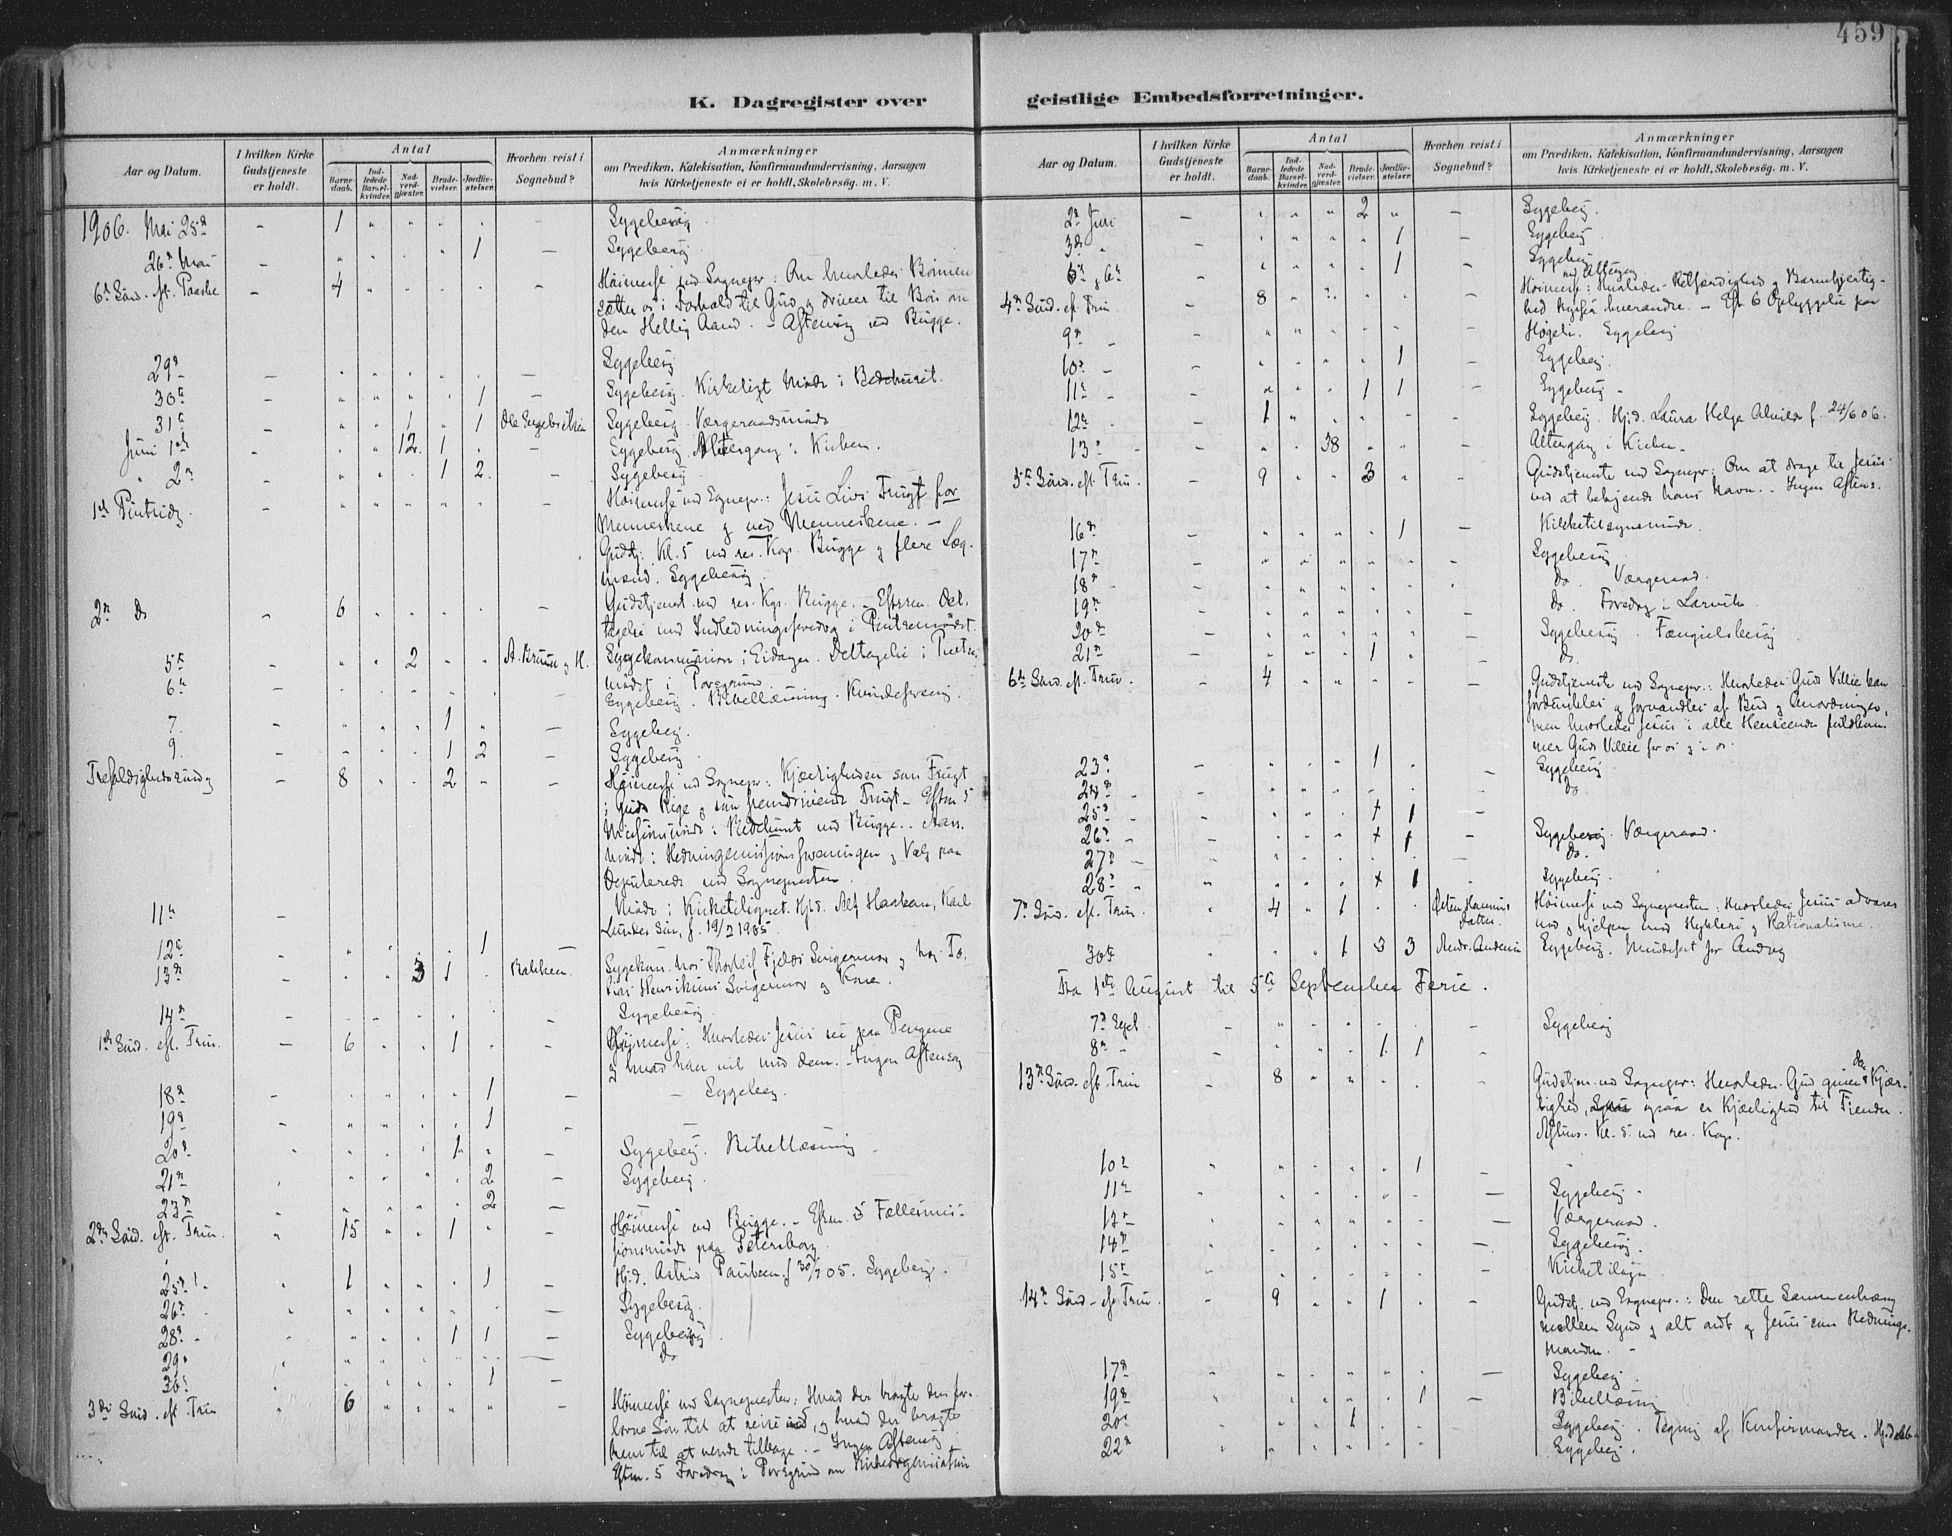 459
K. Dagregister over geistlige Embedsforretninger.
Aar og Datum.
I hvilken Kirke Gudstjeneste er holdt.
Antal
Barne-daab.
Ind-ledede Barsel-kvinder.
Nad-verd-gjester.
Brude-vielser.
Jordfæ-stelser.
Hvorhen reist i Sognebud?
Anmærkninger
om Prædiken, Katekisation, Konfirmandundervisning, Aarsagen
hvis Kirketjeneste ei er holdt, Skolebesøg. m. V.
1906. Mai 25de - 1 Sygebesøg.
26de Mai - 1 - Sygebesøg
6te Sønd. eft. Paaske - 4 Høimesse ved Sognepr: Om hvorledes Bønnen
sætter os i Forhold til Gud og driver til Bøn om
den Hellig Aand. - Aftensang ved Bugge.
29de - Sygebesøg
30te - 1 - Sygebesøg. Kirkeligt Møde i Bedehuset.
31te - 1 1 Ole Engebretsen Sygebesøg. Værgeraadsmøde
Juni 1ste 12 1 - Sygebesøg Altergang i Kirken.
" 2den - 1 2 - Sygebesøg
1ste Pintsedag - Høimesse ved Sognepr.: Jesu Livs Frugt for
Menneskene og ved Menneskene. -
Gudstj. Kl. 5 ved res. Kap. Bugge og flere Læg-
mænd. Sygebesøg.
2den Do - 6 - Gudstjenest ved res. Kap. Bugge. - Efterm. Del-
tagelse med Indledningsforedrag i Pintsemødet.
5te - 2 Sygekommunion i Eidanger. Deltagelse i Pintse-
mødet i Porsgrund.
6te - Sygebesøg. Bibellæsning. Kvindeforening.
7. - 1 - Sygebesøg.
9. - 1 2 - Sygebesøg
Trefoldighedssøndag - 8 2 - Høimesse ved Sognepr: Kjærligheden som Frugt
i Guds Rige og som frembringende Frugt - Efterm 5
Missionsmøde i Bedehuset ved Bugge. Aars-
møde i Hedningemissionsforeningen og Valg paa
Deputerede ved Sognepresten.
11te - Møde i Kirketilsynet. Hjd. Alf Haakon, Karl
Lundes Søn, f. 19/2 1905.
12te - 1 -
13de - 3 1 Bakken. Sygekom. hos Thorleif Fjelds Svigermor og hos To-
bias Henriksens Svigermor og Kone.
14de - Sygebesøg.
1ste Sønd. eft. Trin. - 6 1 - Høimesse: Hvorledes Jesus ser paa Pengene
og hvad han vil med dem. - Ingen Aftensang
18de - 1 - Sygebesøg.
19de - 1 -
20de 1 - Sygebesøg. Bibellæsning
21de 2 - Sygebesøg.
23de 2 -
2den Sønd. eft. Trin. 15 1 - Høimesse ved Bugge. - Efterm. 5 Fællesmis-
sionsmøde paa Petersborg.
25de 1 1 - Hjd. Astrid Paulsen f 30/ 05. Sygebesøg.
26de - Sygebesøg.
28de 1 1 - Sygebesøg
29de - Do
30te 1 -
3die Sønd. eft Trin 6 - Høimesse ved Sognepresten: Hvad der bragte den for-
lorne Søn til at reise ud, og hvad der bragte
ham til at vende tilbage. - Ingen Aftensang
Eftm. 5 Foredrag i Porsgrund om Kirkeorganisation
Aar og Datum.
I hvilken Kirke Gudstjeneste er holdt.
Antal
Barne-daab.
Ind-ledede Barsel-kvinder.
Nad-verd-gjester.
Brude-vielser.
Jordfæ-stelser.
Hvorhen reist i Sognebud?
Anmærkninger
om Prædiken, Katekisation, Konfirmandundervisning, Aarsagen
hvis Kirketjeneste ei er holdt, Skolebesøg. m. V.
2den Juli - 2 - Sygebesøg.
3die " - 1 - Sygebesøg
5te, 6te - 1 - Sygebesøg
4de Sønd. eft. Trin. - 8 - Høimesse: Hvorledes Retfærdighed og Barmhjertig-
hed kysser hverandre. - Eft 6 Opbyggelse paa
9de - Sygebesøg
10de - 1 - Sygebesøg.
11te - 1 1 - Sygebesøg -
12te - 1 - Sygebesøg. Hjd. Laura Helga f. 24/6 06.
13de - 38 - Altergang i Kirken.
5te Sønd. eft. Trin. - 9 3 - Gudstjeneste ved Sognepr: Om at drage til Jesus
ved at bekjende hans Navn. - Ingen Aftens.
16de - 1 - Kirketilsynsmøde.
17de - Sygebesøg
18de - do. Værgeraad.
19de - do. Foredrag i Larvik.
20de - Sygebesøg. Fængselsbesøg
21de - 1 - do
6te Sønd. eft. Trin. - 4 - Gudstjeneste ved Sognepr.: Hvorledes Guds Villie kan
fordunkles og forvandles af Bud og Anordninger,
men hvorledes Jesus i alle Henseender fuldkom-
mer Guds Villie for os og i os.
23de 1 - Sygebesøg
24de " Do
25de " + 1
26de " + 1 - Sygebesøg. Værgeraad.
27de - do.
28de " + 1 - Sygebesøg.
7de Sønd. eft. Trin. 4 1 Høimesse ved Sognepresten: Hvorledes Jesus advarer
mod og hjelper mod Hykleri og Rationalisme.
30te 1 3 3 Andr. Andersen Sygebesøg. Mindefest for
Fra 1ste August til 5te September Ferie.
7de Sept. - Sygebesøg
8de - 1 1
13de Sønd. eft. Trin 8 Gudstjen. ved Sognepr: Hvorledes Gud giver den Kjær-
lighed, ogsaa er Kjærlighed til Fiender.
Aftens. Kl. 5 ved res. Kap.
10de 1 -
11te - Sygebesøg -
12te - Værgeraad.
14de - Sygebesøg.
15de - Kirketilsyn
14de Sønd. eft. Trin. - 9 1 - Gudstj. ved Sognepr.: Den rette Sammenhæng
mellem Synd og alt ondt og Jesus som Rednings-
manden. -
17de - Sygebesøg
19de 1 - Bibellæsning
20de 1 Sygebesøg. Tegning af Konfirmander.
22de Sygebesøg.